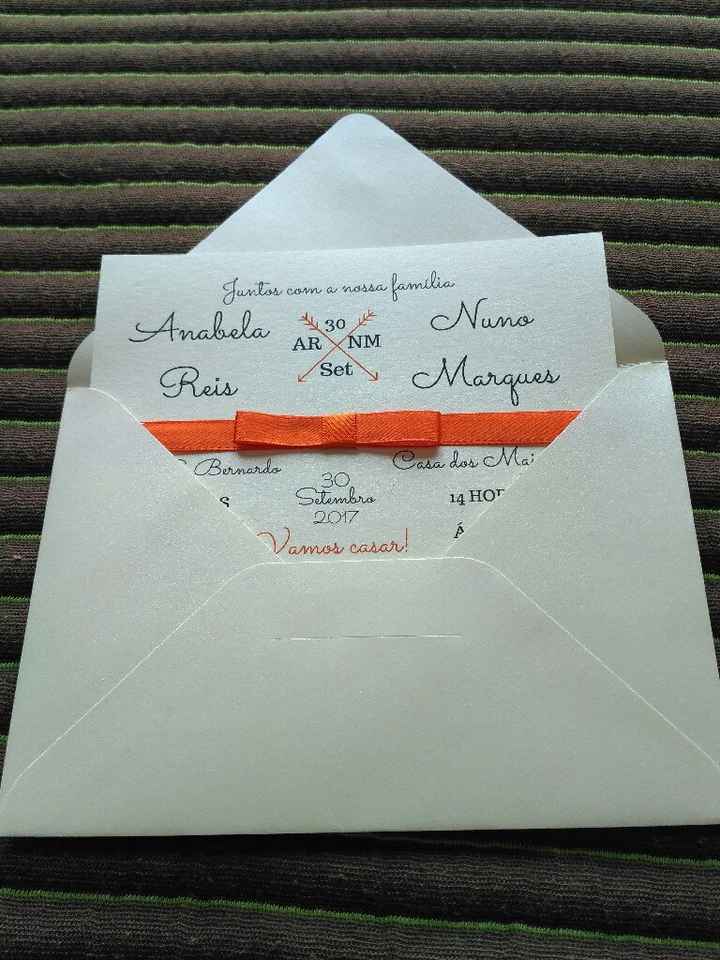 Juntos com a nossa família
Anabela Reis
30
AR NM
Set
Nuno Marques
Bernardo
30
Setembro
2017
Casa dos
14
Vamos casar!